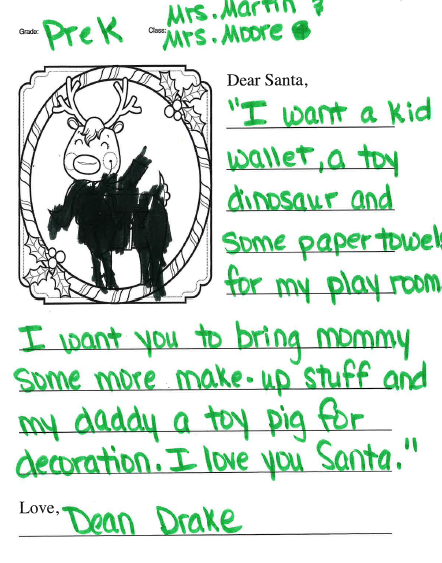 Grade: PreK Class: Mrs. Martin &
Mrs. Moore
Dear Santa,
"I want a kid
wallet, a toy
dinosaur and
some paper towels
for my play room.
I want you to bring mommy
some more make-up stuff and
my daddy a toy pig for
decoration. I love you Santa."
Love, Dean Drake